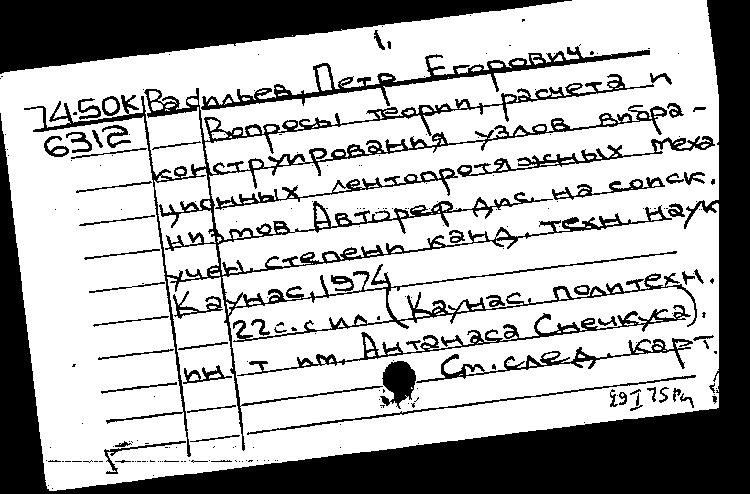 1.
74-50К Васильев, Петр Егорович.
6312 Вопросы теории, расчета и
конструирования узлов вибра-
ционных лентопротяжных меха-
низмов. Автореф. дис. на соиск.
учен. степени канд. техн. наук
Каунас, 1974.
22с. с ил. (Каунас. политехн.
ин. т им. Антанаса Снечкуса).
См. след. карт.
29 I 75